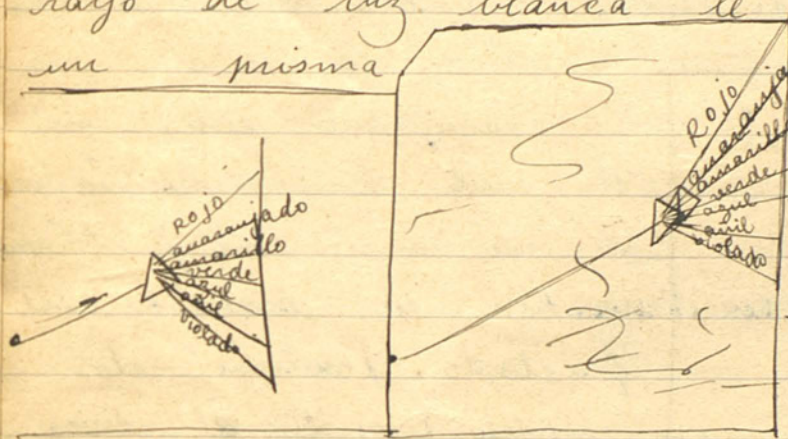 rayo de luz blanca
un prisma
ROJO
anaranjado
amarillo
verde
azul
añil
violado
ROJO
anaranja
amarill
verde
azul
añil
violado